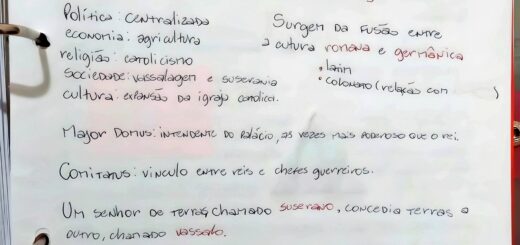 Política: centralizada
economia: agricultura
religião: catolicismo
sociedade: vassalagem e suserania
cultura: expansão da igreja catolica.
Surgem da fusão entre
a cutura romana e germânica
• latin
• colonato (relação com )
Major Domus: intendente do palácio, as vezes mais poderoso que o rei.
Comitatus: vinculo entre reis e chefes guerreiros.
Um senhor de terras, chamado suserano, concedia terras a
outro, chamado vassalo.